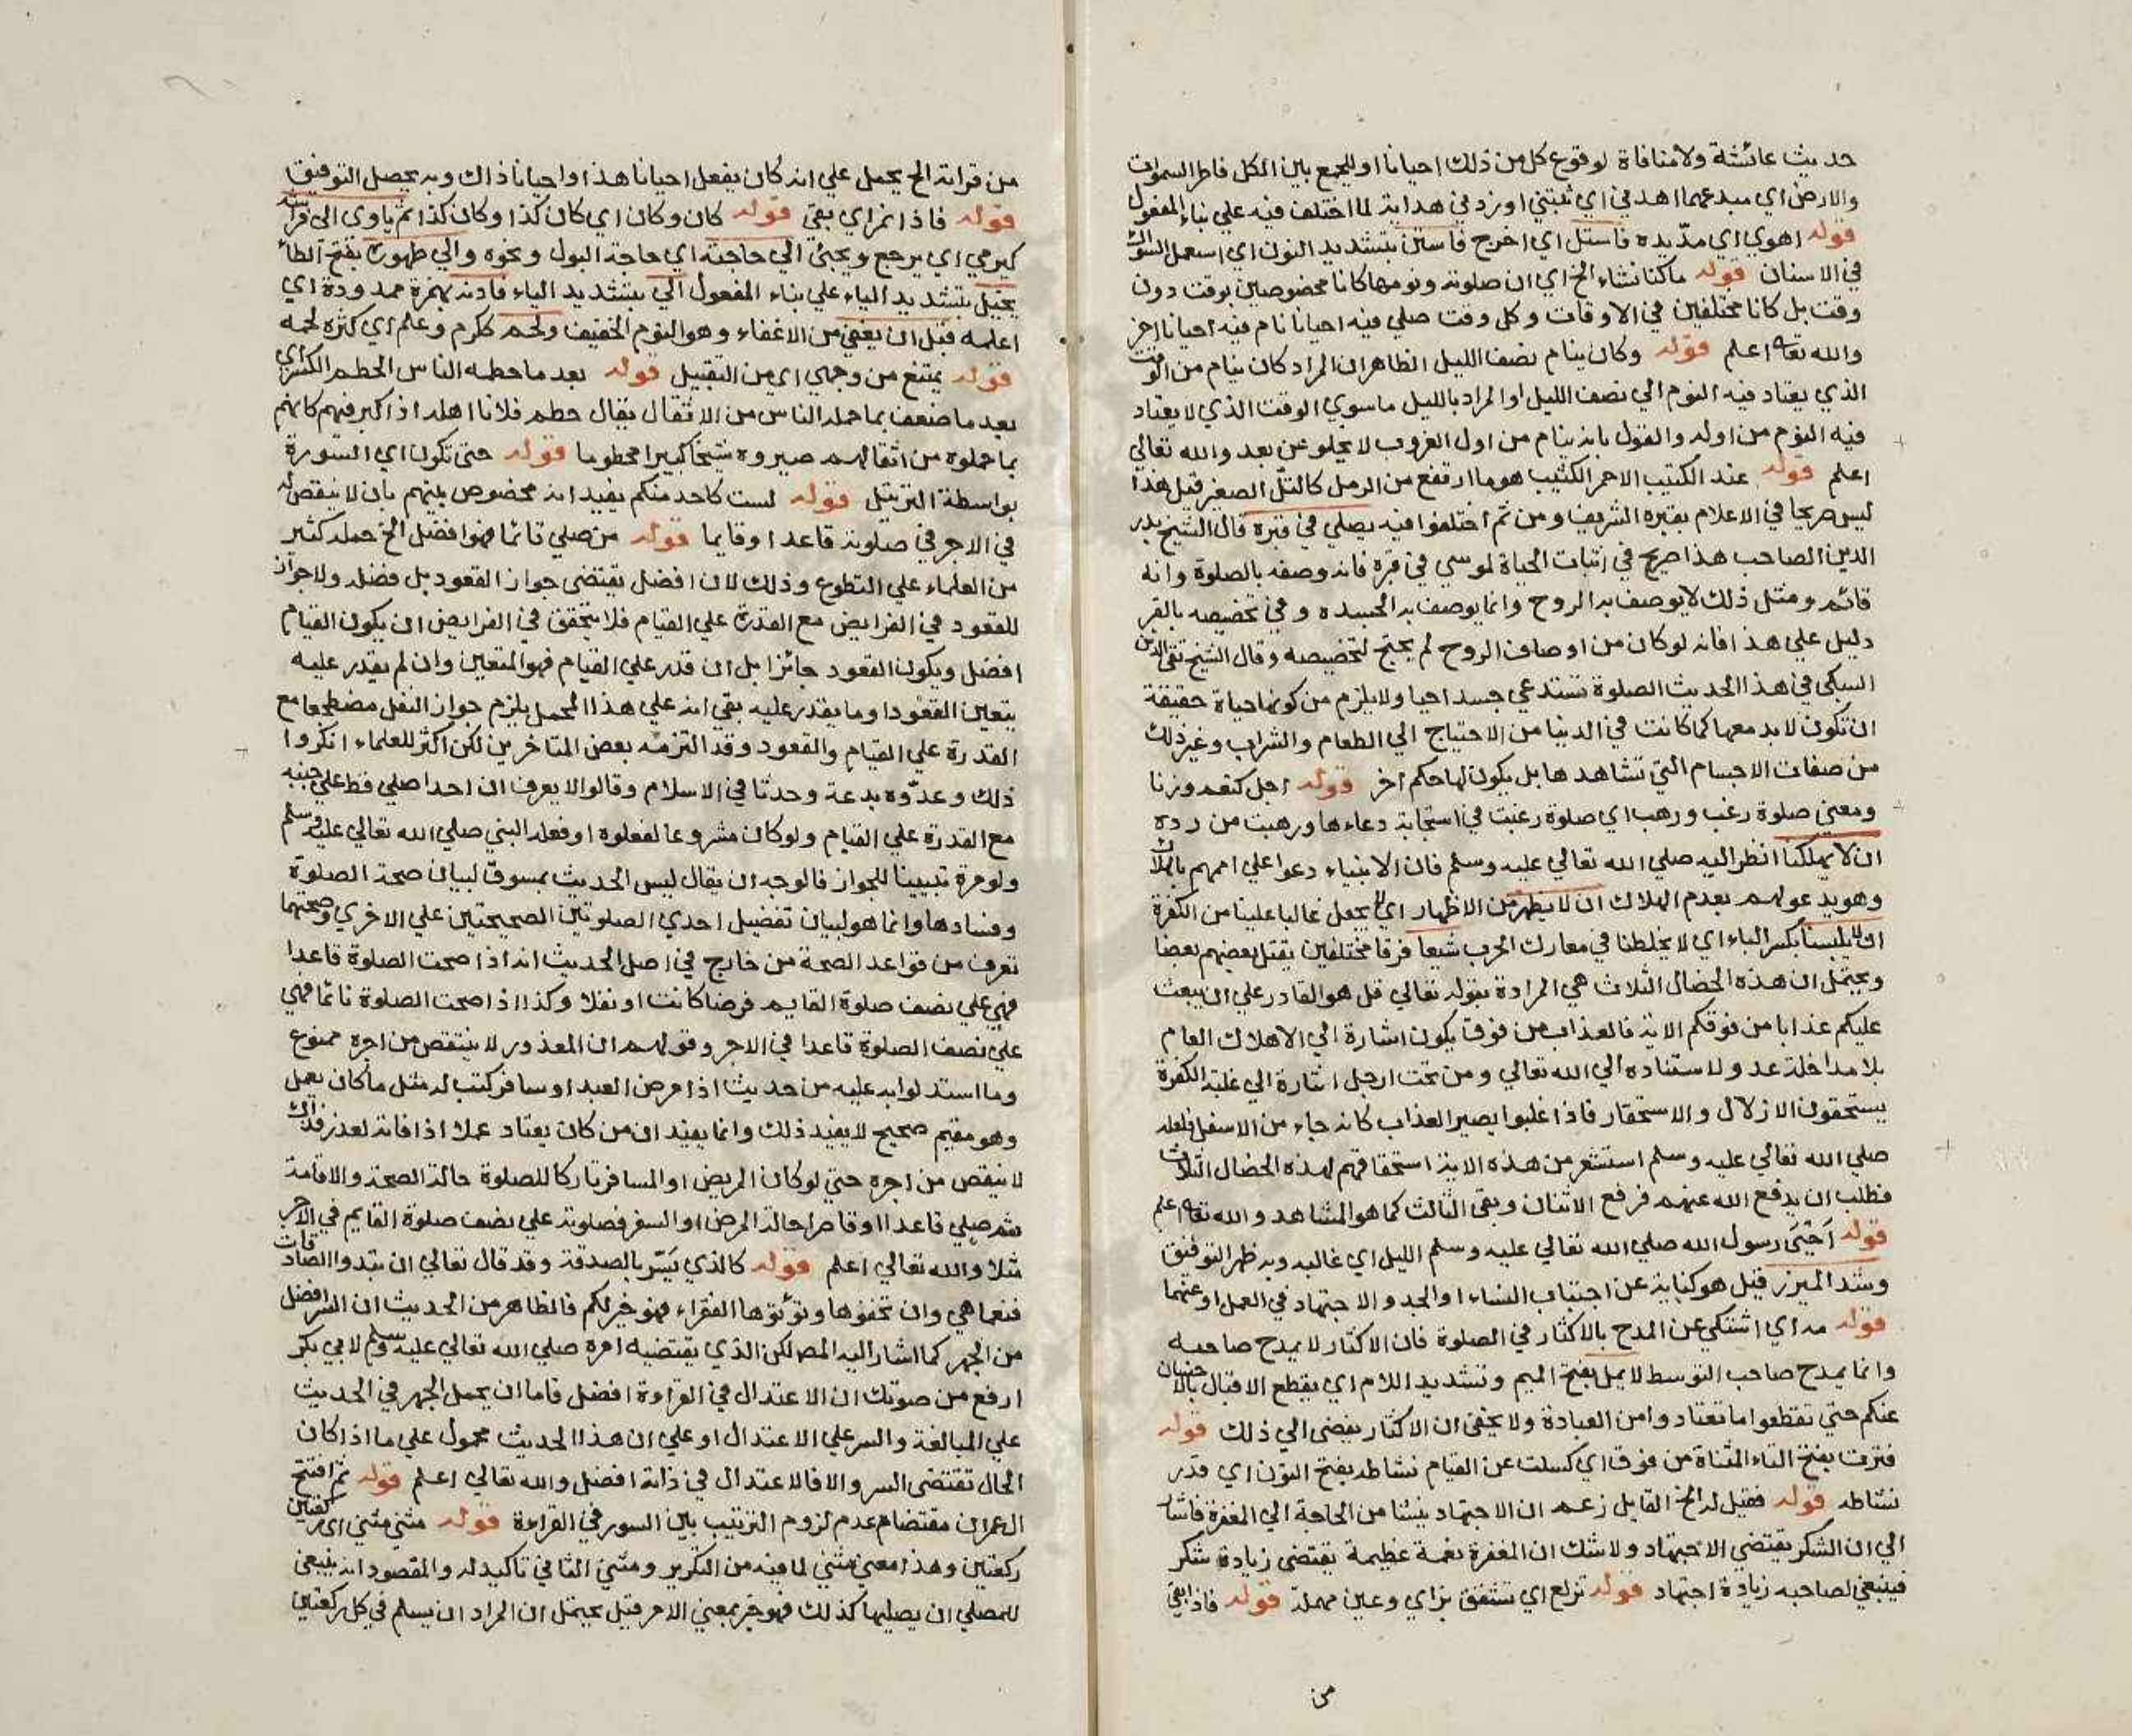 حديث عائشة ولا منافاة لوقوع كل من ذلك احيانا او للجمع بين الكل فاطر السموات
والارض اي مبدعهما اهدني اي ثبتني او زدني هداية لما اختلف فيه علي بناء المفعول
قوله اهوي اي مدّ يده فاستل اي اخرج فاستن بتشديد النون اي استعمل السواك
في الاسنان قوله ماكنا نشاء الخ اي ان صلوته ونومه ماكانا مخصوصين بوقت دون
وقت بل كانا مختلفين في الاوقات وكل وقت صلي فيه احيانا نام فيه احيانا اخر
والله تعه اعلم قوله وكان ينام نصف الليل الظاهر ان المراد كان ينام من الوقت
الذي يعتاد فيه النوم الي نصف الليل او المراد بالليل ماسوي الوقت الذي لا يعتاد
فيه النوم من اوله والقول بانه ينام من اول الغروب لا يخلو عن بعد والله تعالي
اعلم قوله عند الكثيب الاحمر الكثيب هو ما ارتفع من الرمل كالتلّ الصغير قيل هذا
ليس صريحا في الاعلام بقبره الشريف ومن ثم اختلفوا فيه يصلي في قبره قال الشيخ بدر
الدين الصاحب هذا صريح في اثبات الحياة لموسي في قبره فانه وصفه بالصلوة وانه
قائم ومثل ذلك لا يوصف به الروح وانما يوصف به الجسد وفي تخصيصه بالقبر
دليل علي هذا فانه لوكان من اوصاف الروح لم يحتج لتخصيصه وقال الشيخ تقي الدين
السبكي في هذا الحديث الصلوة تستدعي جسدا حيا ولا يلزم من كونها حياة حقيقة
ان تكون لا بد معها كما كانت في الدنيا من الاحتياج الي الطعام والشراب وغير ذلك
من صفات الاجسام التي تشاهدها بل يكون لها حكم اخر قوله اجل كنعم وزنا
ومعني صلوة رغب ورهب اي صلوة رغبت في استجابة دعاءها ورهبت من رده
ان لا يهلكنا انظر اليه صلي الله تعالي عليه وسلم فان الانبياء دعوا علي اممهم بالهلاك
وهو يدعو لهم بعدم الهلاك ان لا يظهر من الاظهار اي لا يجعل غالبا علينا من الكفرة
ان لا يلبسنا بكسر الباء اي لا يخلطنا في معارك الحرب شيعا فرقا مختلفين يقتل بعضهم بعضا
ويحتمل ان هذه الخصال الثلاث هي المرادة بقوله تعالي قل هو القادر علي ان يبعث
عليكم عذابا من فوقكم الاية فالعذاب من فوق يكون اشارة الي الاهلاك العام
بلا مداخلة عدو لاستناده الي الله تعالي ومن تحت ارجل اشارة الي غلبة الكفرة
يستحقون الاذلال والاستحقار فاذا غلبوا يصير العذاب كانه جاء من الاسفل فلعله
صلي الله تعالي عليه وسلم استشعر من هذه الاية استحقاقهم لهذه الخصال الثلاث
فطلب ان يدفع الله عنهم فرفع الاثنان وبقي الثالث كما هو المشاهد والله تعه اعلم
قوله اَحْيَى رسول الله صلي الله تعالي عليه وسلم الليل اي غالبه وبه ظهر التوفيق
وشد الميزر قيل هو كناية عن اجتناب النساء او الجد والاجتهاد في العمل او عنهما
قوله مه اي اشتكي عن المدح بالاكثار في الصلوة فان الاكثار لا يمدح صاحبه
وانما يمدح صاحب التوسط لا يمل بفتح الميم وتشديد اللام اي يقطع الاقبال بالاحسان
عنكم حتي تقطعوا ما تعتادوا من العبادة ولا يخفى ان الاكثار يفضي الي ذلك قوله
فترت بفتح التاء المثناة من فوق اي كسلت عن القيام نشاطه بفتح النون اي قدر
نشاطه قوله فقيل له الخ القايل زعم ان الاجتهاد ينشا من الحاجة الي المغفرة فاشار
الي ان الشكر يقتضي الاجتهاد ولا شك ان المغفرة نعمة عظيمة تقتضى زيادة شكر
فينبغي لصاحبه زيادة اجتهاد قوله تزلع اي تشقق بزاي وعين مهملة قوله فاذا بقي
من
من قراته الخ يحمل علي انه كان يفعل احيانا هذا واحيانا ذاك وبه يحصل التوفيق
قوله فاذا نزاي بقي قوله كان وكان اي كان كذا وكان كذا ثم ياوى الى فراشه
كيرمي اي يرجع ويجئ الي حاجته اي حاجة البول ونحوه والي طهوره بفتح الطاء
يخيل بتشديد الياء علي بناء المفعول الي بتشديد الياء فاذنه بهمزة ممدودة اي
اعلمه قبل ان يغفي من الاغفاء وهو النوم الخفيف ولحم ككرم وعلم اي كثر لحمه
قوله يمتنع من وجهي اي من التقبيل قوله بعد ما حطمه الناس الحطم الكسر اي
بعد ما ضعف بما حمله الناس من الاثقال يقال حطم فلانا اهله اذ اكبر فيهم كانهم
بما حملوه من اثقالهم صيروه شيخا كبيرا محطوما قوله حتى تكون اي السّورة
بواسطة الترتيل قوله لست كاحد منكم يفيد انه مخصوص بينهم بان لا ينقص له
في الاجر في صلوته قاعدا وقايما قوله من صلي قائما فهو افضل الخ حمله كثير
من العلماء علي التطوع وذلك لان افضل يقتضى جواز القعود بل فضله ولا جواز
للقعود في الفرايض مع القدرة علي القيام فلا يتحقق في الفرايض ان يكون القيام
افضل ويكون القعود جائزا بل ان قدر علي القيام فهو المتعين وان لم يقدر عليه
يتعين القعود او ما يقدر عليه بقي انه علي هذا المحمل يلزم جواز النفل مضطجعا مع
القدرة علي القيام والقعود وقد التزمه بعض المتاخرين لكن اكثر للعلماء انكروا
ذلك وعدّوه بدعة وحدثا في الاسلام وقالوا لا يعرف ان احدا صلي قط علي جنبه
مع القدرة علي القيام ولو كان مشروعا لفعلوه او فعله النبي صلي الله تعالي عليه وسلم
ولو مرة تبيينا للجواز فالوجه ان يقال ليس الحديث بمسوق لبيان صحة الصلوة
وفسادها وانما هو لبيان تفضيل احدي الصلوتين الصحيحتين علي الاخري وصحتهما
تعرف من قواعد الصحة من خارج في اصل الحديث انه اذا صحت الصلوة قاعدا
فهي علي نصف صلوة القايم فرضا كانت او نفلا وكذا اذا صحت الصلوة نائما فهي
علي نصف الصلوة قاعدا في الاجر وقولهم ان المعذور لا ينتقص من اجره ممنوع
وما استدلوا به عليه من حديث اذا مرض العبد او سافر كتب له مثل ماكان يعمل
وهو مقيم صحيح لا يفيد ذلك وانما يفيد ان من كان يعتاد عملا اذا فاته لعذر فذاك
لا ينقص من اجره حتي لو كان المريض او المسافر تاركا للصلوة حالة الصحة والاقامة
ثم صلي قاعدا او قاصرا حالة المرض او السفر فصلوته علي نصف صلوة القايم في الاجر
مثلا والله تعالي اعلم قوله كالذي يَسّر بالصدقة وقد قال تعالي ان تبدوا الصدقات
فنعما هي وان تخفوها وتؤتوها الفقراء فهو خير لكم فالظاهر من الحديث ان السر افضل
من الجهر كما اشار اليه المص لكن الذي يقتضيه امره صلي الله تعالي عليه وسلم لابي بكر
ارفع من صوتك ان الاعتدال في القراءة افضل فاما ان يحمل الجهر في الحديث
علي المبالغة والسر علي الاعتدال او علي ان هذا الحديث محمول علي ما اذا كان
الحال تقتضى السر والا فالاعتدال في ذاته افضل والله تعالي اعلم قوله ثم افتتح
ال عمران مقتضاه عدم لزوم الترتيب بين السور في القراءة قوله مثني مثني اي ركعتين
ركعتين وهذا معني مثني لما فيه من التكرير ومثني الثاني تاكيد له والمقصود انه ينبغي
للمصلي ان يصليها كذلك فهو خبر بمعني الامر قيل يحتمل ان المراد ان يسلم في كل ركعتين